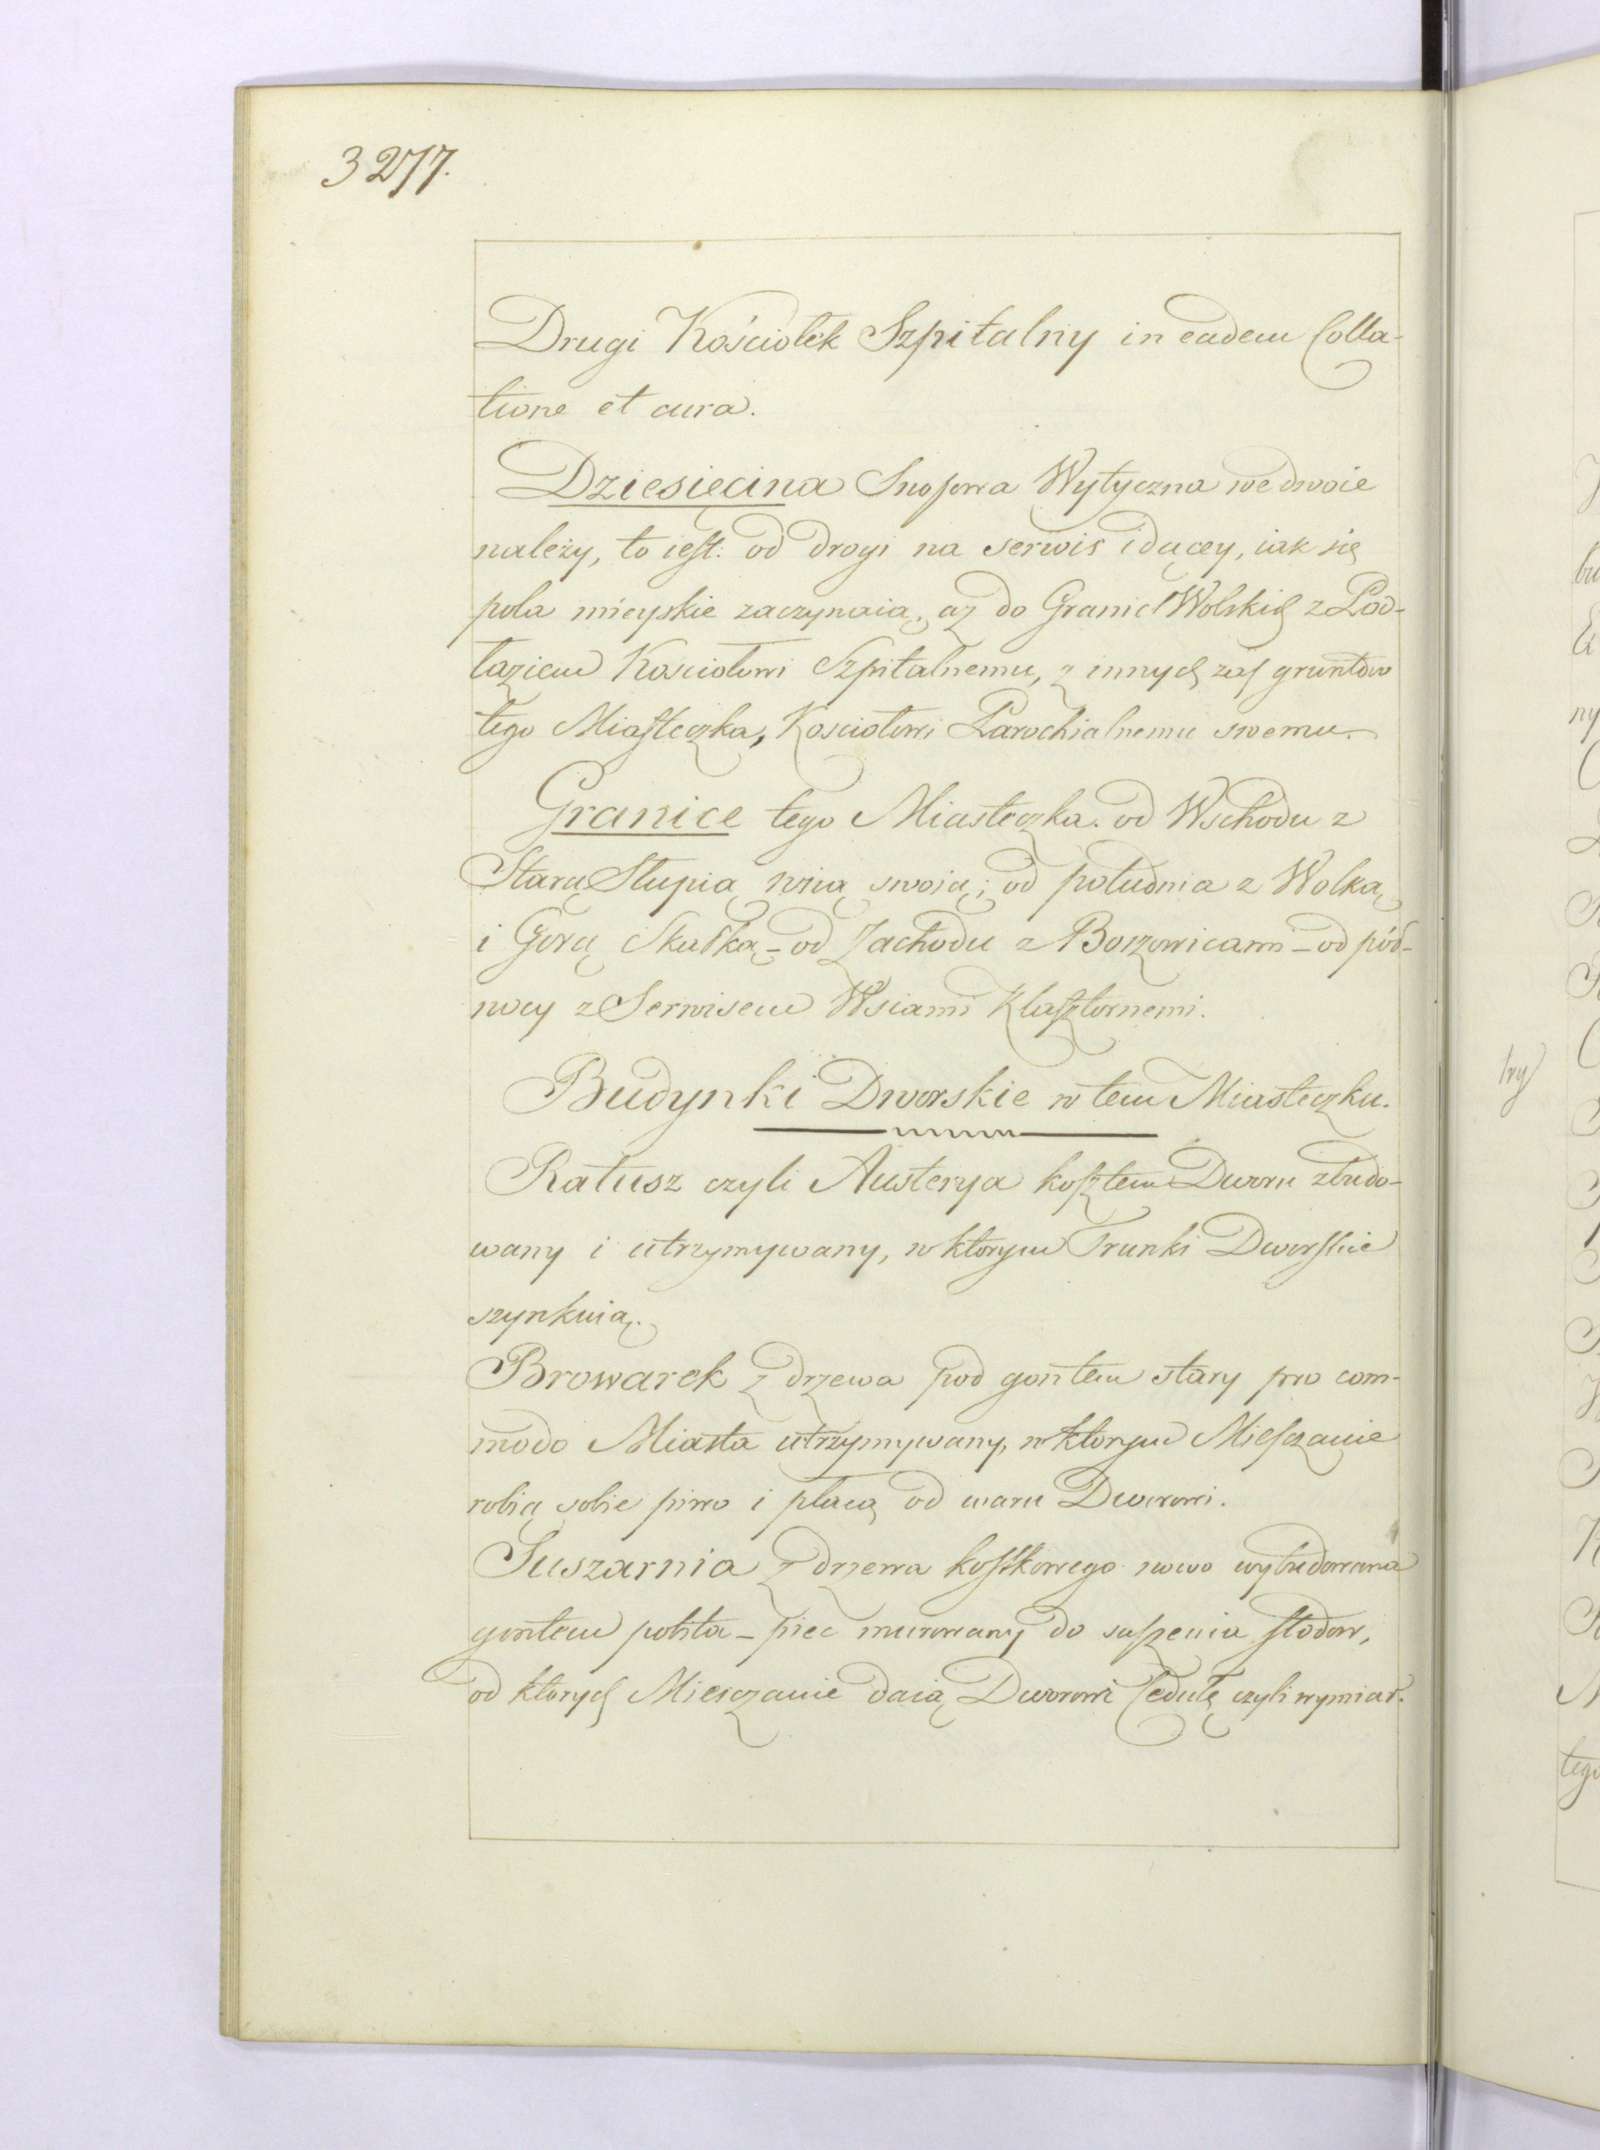 3277.
Drugi Kościołek Szpitalny in eadem Colla-
tione et cura.
Dziesięcina Snopowa Wytyczna we dwoie
należy, to iest: od drogi na serwis idącey, iak się
pola mieyskie zaczynaią, aż do Granic Wolskich z Pod-
łaziem Kościołowi Szpitalnemu, z innych zaś gruntów
tego Miasteczka, Kościołowi Parochialnemu swemu.
Granice tego Miasteczka. od Wschodu z
Starą Słupią wsią swoią; od południa z Wolką
i Górą Skałką – od Zachodu z Borzowicami – od pół-
nocy z Serwisem Wsiami Klasztornemi.
Budynki Dworskie w tem Miasteczku.
Ratusz czyli Austerya kosztem Dworu zbudo-
wany i utrzymywany, w ktorym Trunki Dworskie
szynkuią.
Browarek z drzewa pod gontem stary pro com-
modo Miasta utrzymywany, w ktorym Miesczanie
robią sobie piwo i płacą od waru Dworowi.
Suszarnia z drzewa kostkowego nowo wybudowana
gontem pobita – piec murowany do suszenia słodow,
od ktorych Miesczanie daią Dworowi Cedułę czyli wymiar.
try
bu
ny
tego